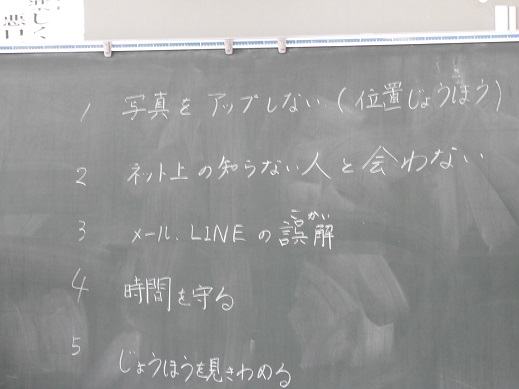 楽しく
悪口
1 写真をアップしない(位置じょうほう)
2 ネット上の知らない人と会わない
3 メール、LINEの誤解
ごかい
4 時間を守る
5 じょうほうを見きわめる